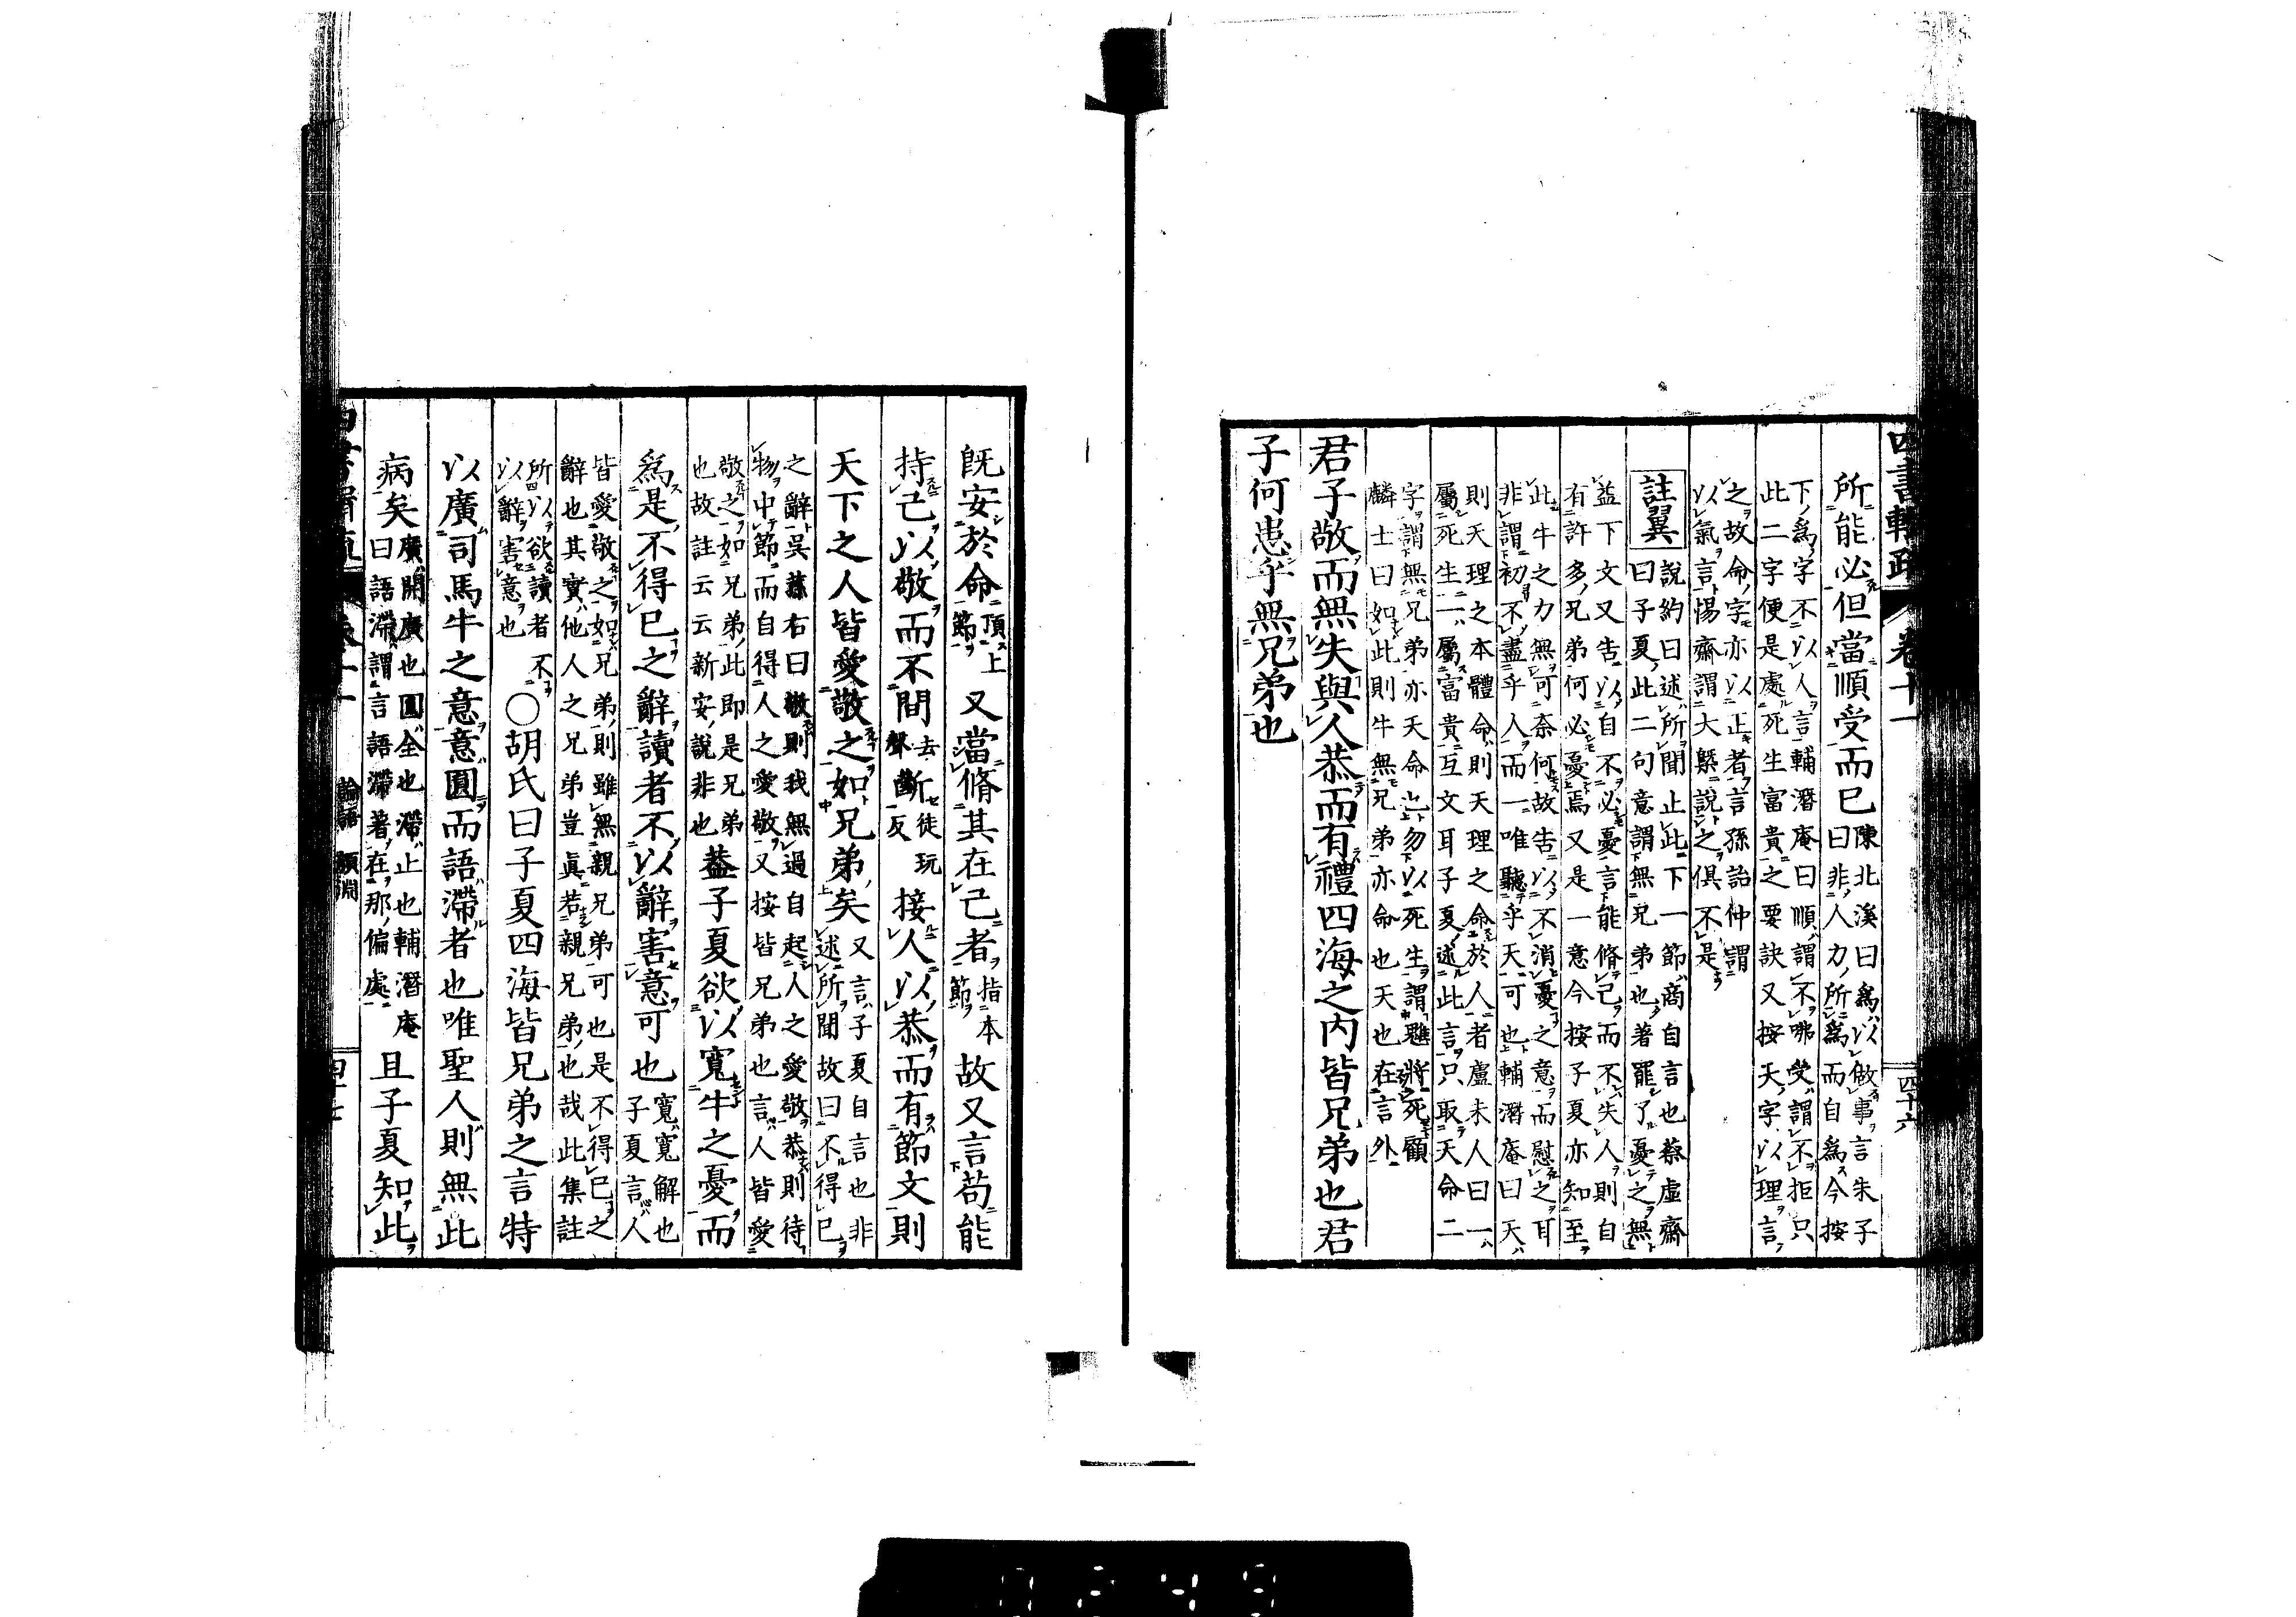 四書輯疏 卷十一 四十六
所能必但當順受而已陳北溪曰爲以做事言朱子
曰非人力所爲而自爲今按
下爲字不以人言輔潛庵曰順謂不咈受謂不拒只
此二字便是處死生富貴之要訣又按天字以理言
之故命字亦以正者言孫詒仲謂
以氣言惕齋謂大槩說之俱不是
註翼說約曰述所聞止此下一節商自言也蔡虛齋
曰子夏此二句意謂無兄弟也著罷了憂之無
益下文又告以自不必憂言能脩己而不失人則自
有許多兄弟何必憂焉又是一意今按子夏亦知至
此牛之力無可奈何故告以不消憂之意而慰之耳
非謂初不盡乎人而一唯聽乎天可也輔潛庵曰天
則天理之本體命則天理之命於人者盧未人曰一
屬死生一屬富貴互文耳子夏述此言只取天命二
字謂無兄弟亦天命也勿以死生謂魋將死顧
麟士曰如此則牛無兄弟亦命也天也在言外
君子敬而無失與人恭而有禮四海之內皆兄弟也君
子何患乎無兄弟也
旣安於命頂上節又當脩其在己者指本節故又言苟能
持己以敬而不間去聲斷徒玩反接人以恭而有節文則
天下之人皆愛敬之如兄弟矣又言子夏自言也非
述所聞故曰不得已
之辭吳蓀右曰敬則我無過自起人之愛敬恭則待
物中節而自得人之愛敬又按皆兄弟也言人皆愛
敬之如兄弟此即是兄弟
也故註云云新安說非也蓋子夏欲以寬牛之憂而
爲是不得已之辭讀者不以辭害意可也寬寬解也
子夏言人
皆愛敬之如兄弟則雖無親兄弟可也是不得已之
辭也其實他人之兄弟豈眞若親兄弟也哉此集註
所以欲讀者不
以辭害意也○胡氏曰子夏四海皆兄弟之言特
以廣司馬牛之意意圓而語滯者也唯聖人則無此
病矣廣開廣也圓全也滯止也輔潛庵
曰語滯謂言語滯著在那偏處且子夏知此
論語 顏淵